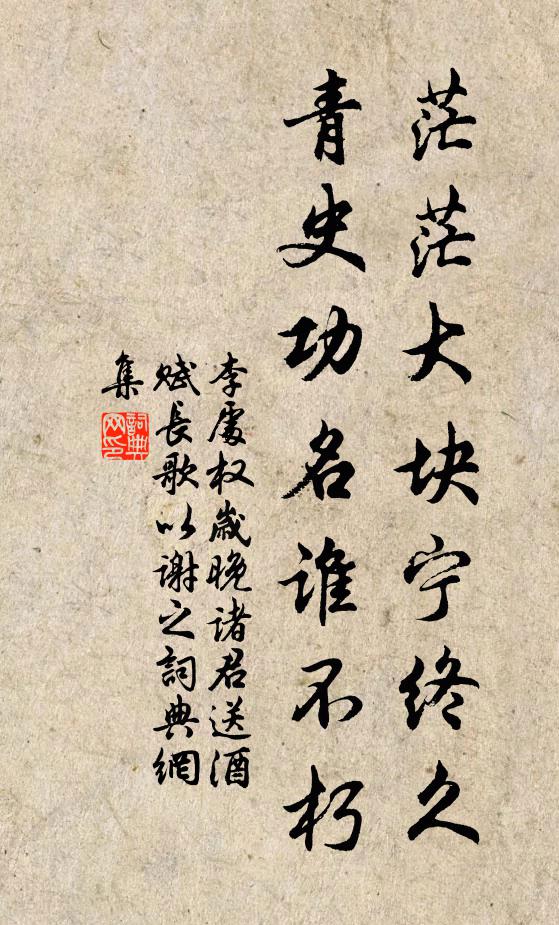 茫茫大块宁终久
青史功名谁不朽
李處权歲晚诸君送酒
赋長歌以谢之詞典網
集
詞典
网印